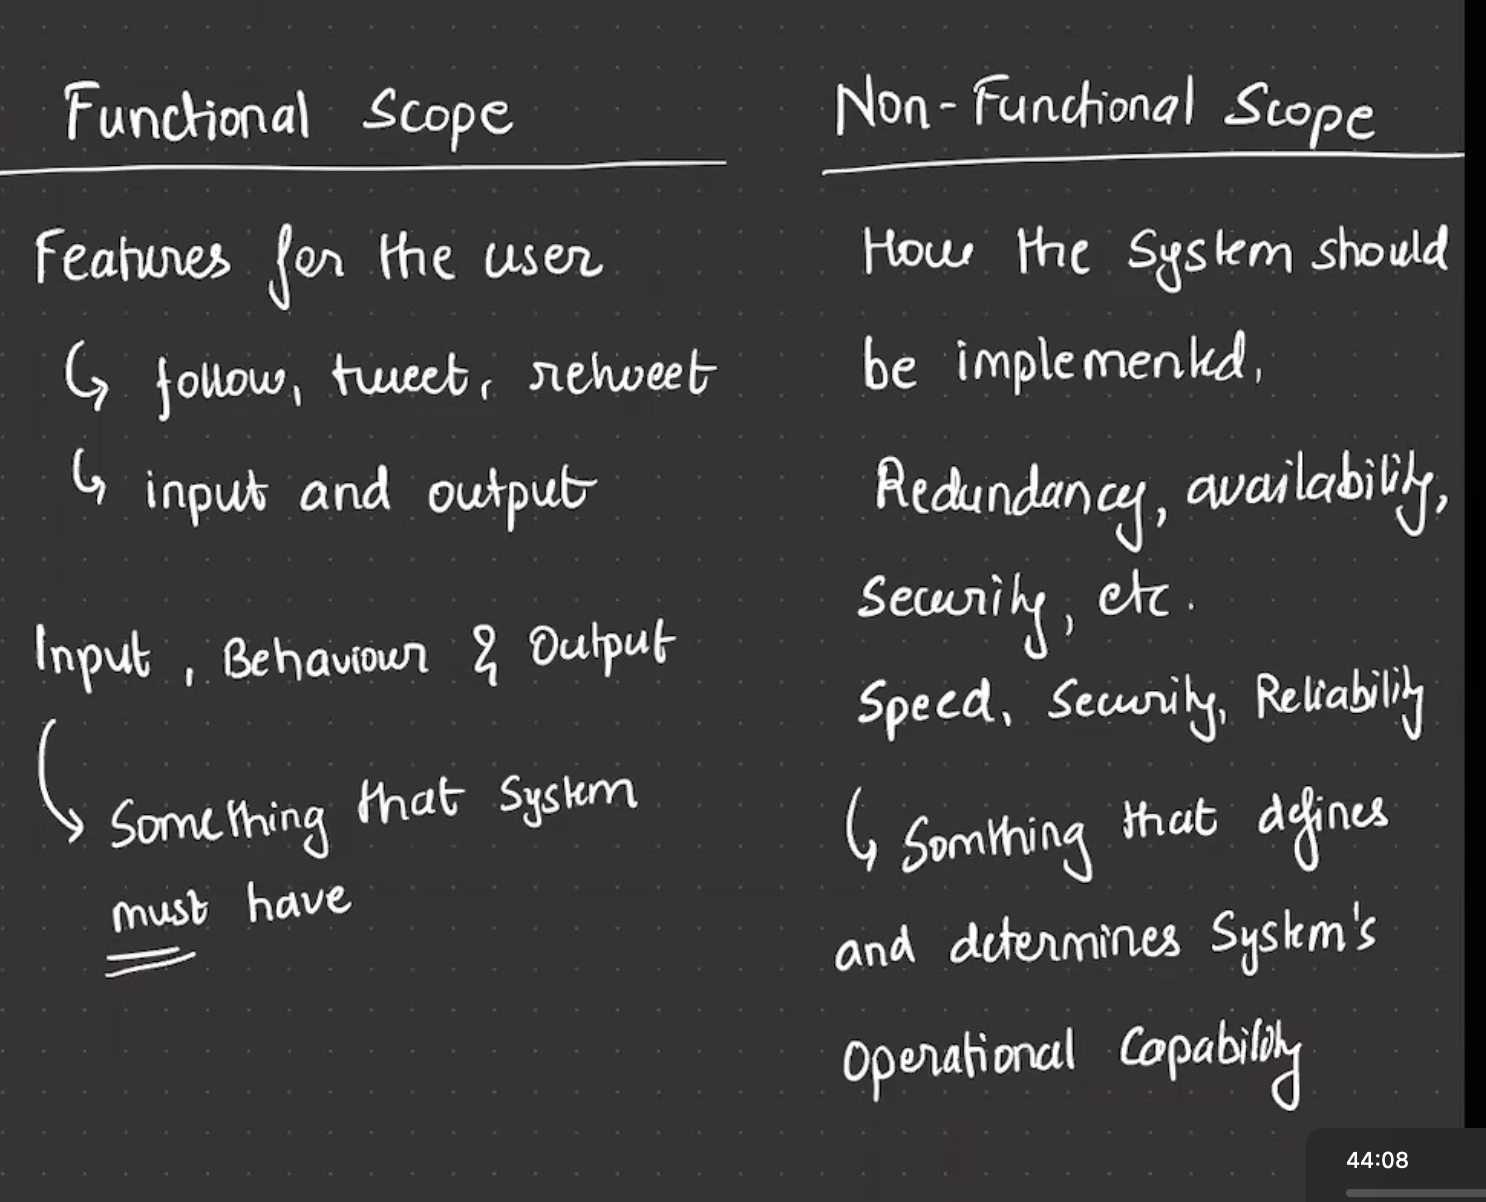 Functional Scope
Features for the user
↳ follow, tweet, retweet
↳ input and output
Input, Behaviour & Output
↳ Something that System
must have
Non-Functional Scope
How the System should
be implemented,
Redundancy, availability,
Security, etc.
Speed, Security, Reliability
↳ Somthing that defines
and determines System's
Operational Capability
44:08